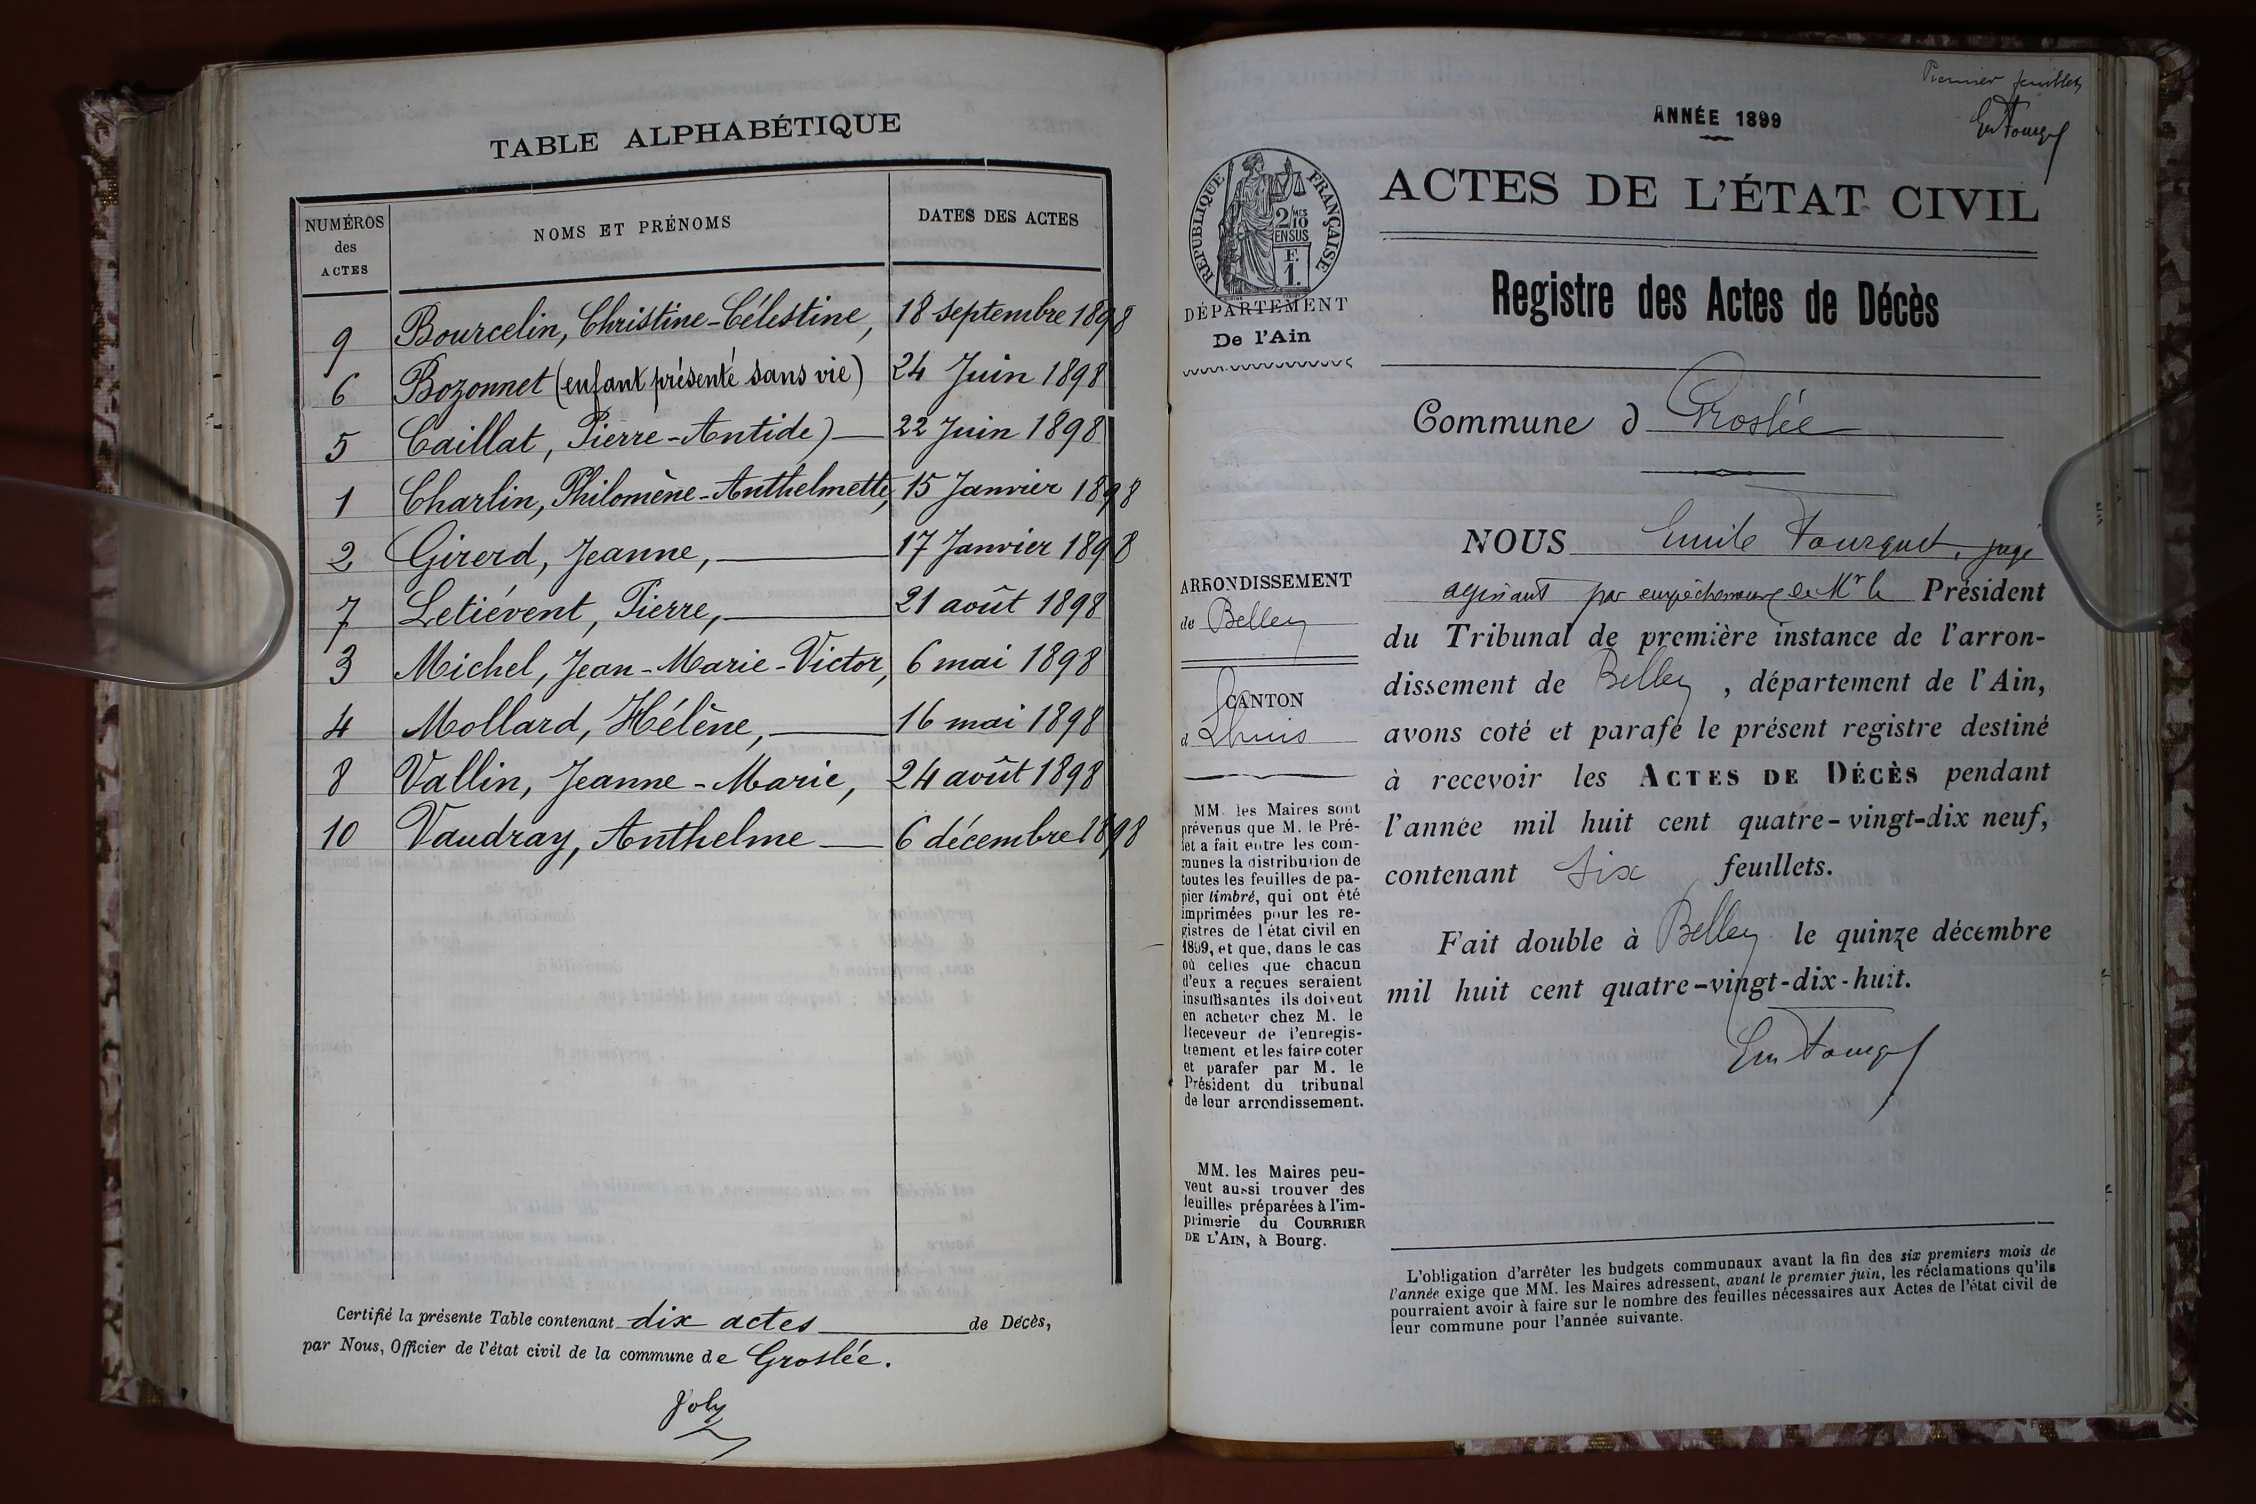 TABLE ALPHABÉTIQUE
NUMÉROS des ACTES
NOMS ET PRÉNOMS
DATES DES ACTES
9 Bourcelin, Christine-Célestine, 18 septembre 1898
6 Bozonnet (enfant présenté sans vie) 24 Juin 1898
5 Caillat, Pierre-Antide) 22 Juin 1898
1 Charlin, Philomène-Anthelmette, 15 Janvier 1898
2 Girerd, Jeanne, 17 Janvier 1898
7 Letiévent, Pierre, 21 août 1898
3 Michel, Jean-Marie-Victor, 6 mai 1898
4 Mollard, Hélène, 16 mai 1898
8 Vallin, Jeanne-Marie, 24 août 1898
10 Vaudray, Anthelme 6 décembre 1898
Certifié la présente Table contenant dix actes de Décès,
par Nous, Officier de l'état civil de la commune de Groslée.
Joly
Premier feuillet
Em Fourq
ANNÉE 1899
ACTES DE L'ÉTAT CIVIL
RÉPUBLIQUE FRANÇAISE
2/10 MES
EN SUS
F.
1.
DÉPARTEMENT
De l'Ain
Registre des Actes de Décès
Commune d Groslée
ARRONDISSEMENT
de Belley
CANTON
d Lhuis
MM. les Maires sont
prévenus que M. le Pré-
fet a fait entre les com-
munes la distribution de
toutes les feuilles de pa-
pier timbré, qui ont été
imprimées pour les re-
gistres de l'état civil en
1899, et que, dans le cas
où celles que chacun
d'eux a reçues seraient
insuffisantes ils doivent
en acheter chez M. le
Receveur de l'enregis-
trement et les faire coter
et parafer par M. le
Président du tribunal
de leur arrondissement.
MM. les Maires peu-
vent aussi trouver des
feuilles préparées à l'im-
primerie du COURRIER
DE L'AIN, à Bourg.
NOUS Emile Fourquet, juge
agissant par empêchement de Mr le Président
du Tribunal de première instance de l'arron-
dissement de Belley, département de l'Ain,
avons coté et parafé le présent registre destiné
à recevoir les ACTES DE DÉCÈS pendant
l'année mil huit cent quatre-vingt-dix neuf,
contenant six feuillets.
Fait double à Belley le quinze décembre
mil huit cent quatre-vingt-dix-huit.
Em Fourq
L'obligation d'arrêter les budgets communaux avant la fin des six premiers mois de
l'année exige que MM. les Maires adressent, avant le premier juin, les réclamations qu'ils
pourraient avoir à faire sur le nombre des feuilles nécessaires aux Actes de l'état civil de
leur commune pour l'année suivante.